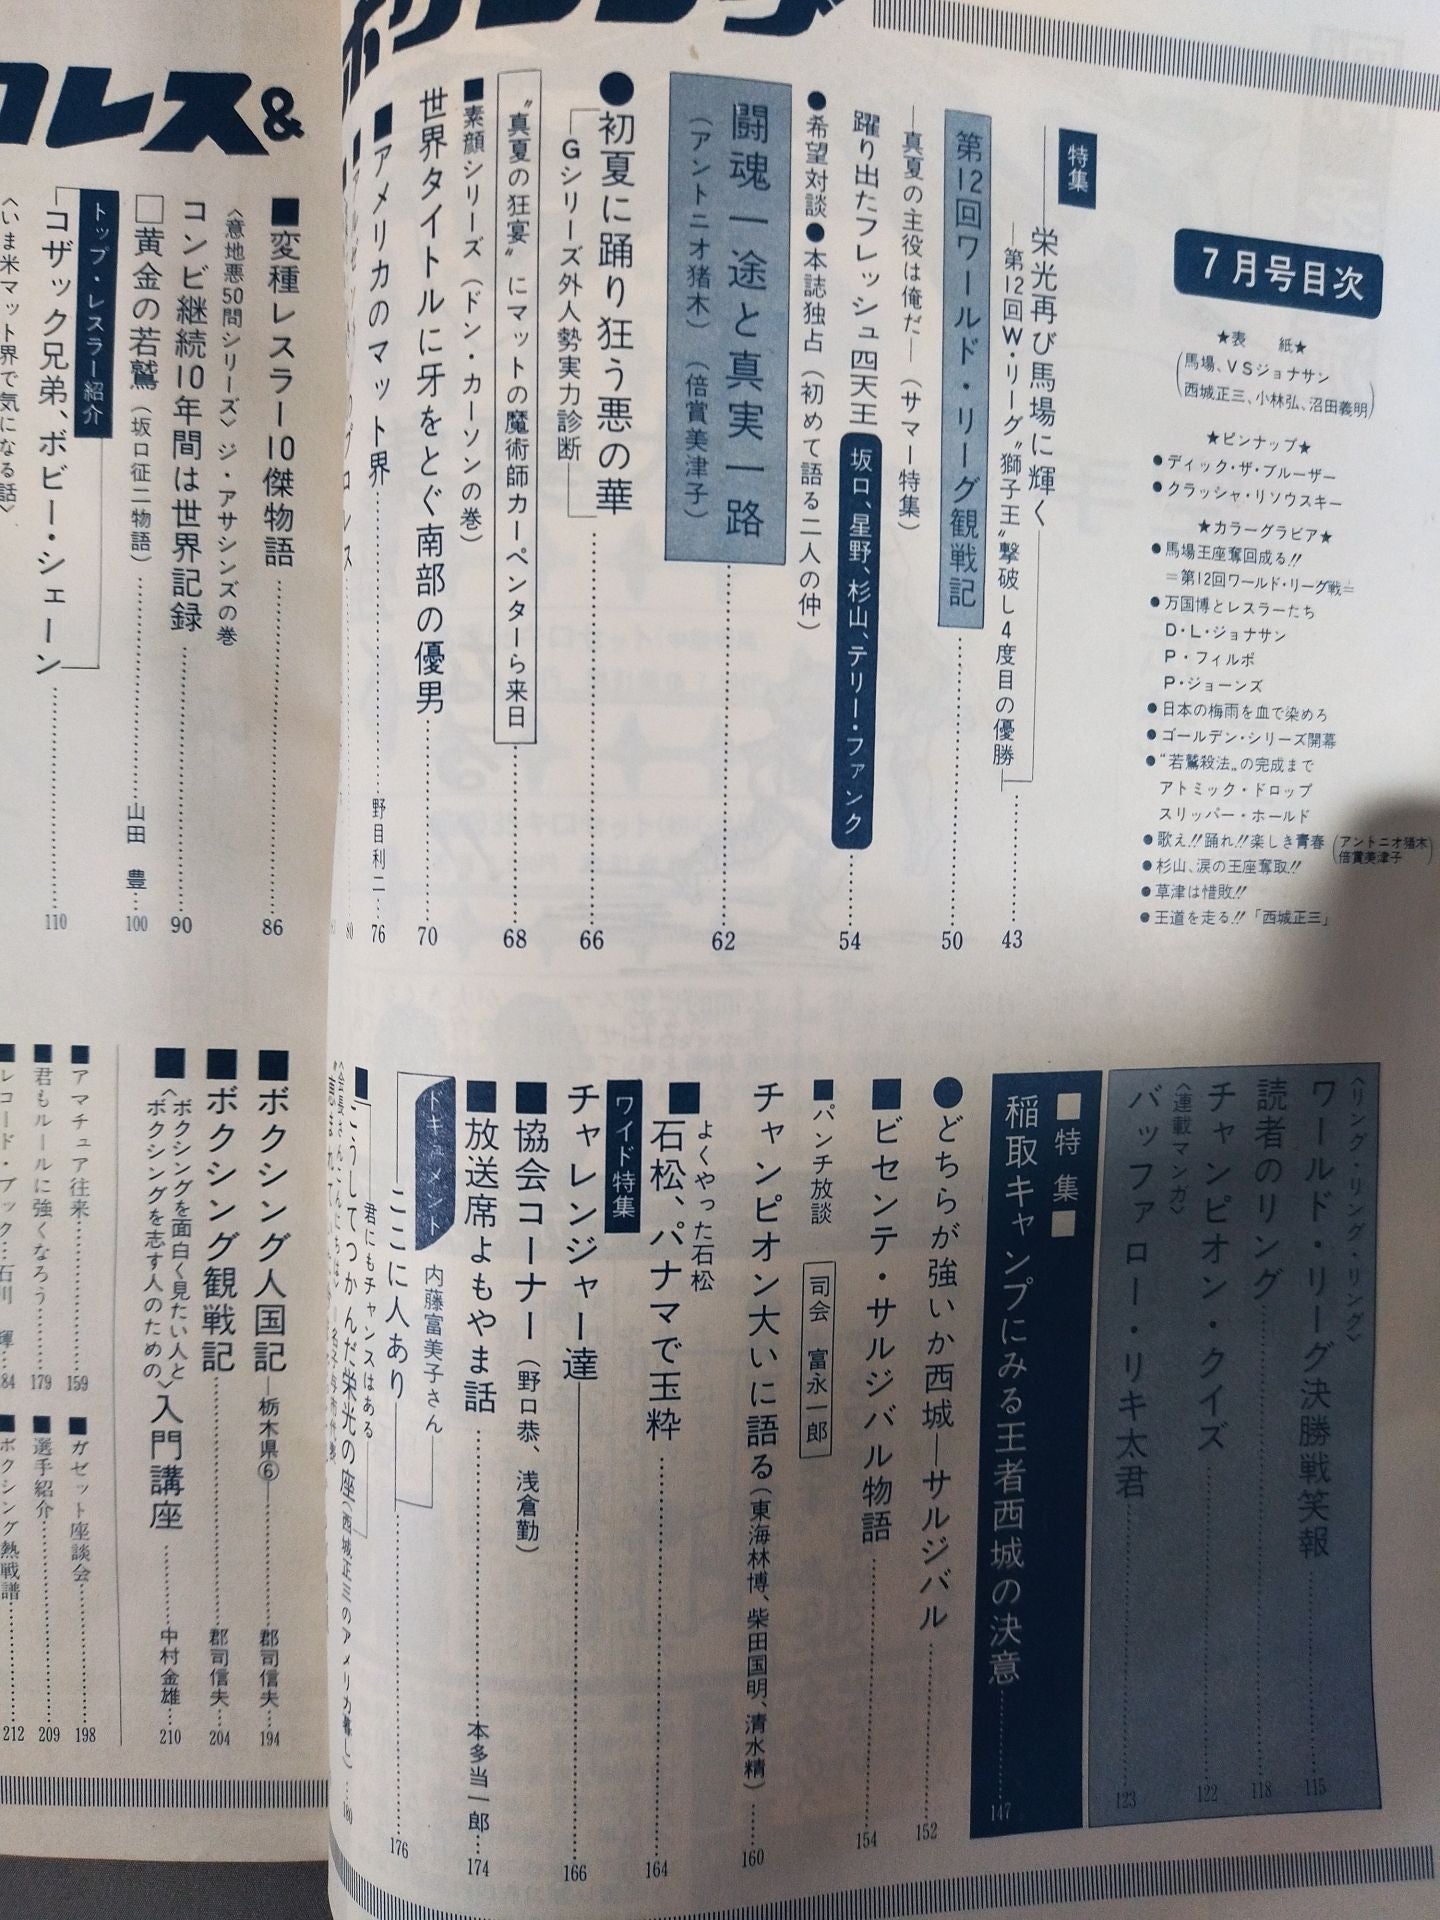 7月号目次
★表　紙★
馬場、VSジョナサン
西城正三、小林弘、沼田義明
★ピンナップ★
●ディック・ザ・ブルーザー
●クラッシャ・リソウスキー
★カラーグラビア★
●馬場王座奪回成る!!
=第12回ワールド・リーグ戦=
●万国博とレスラーたち
D・L・ジョナサン
P・フィルポ
P・ジョーンズ
●日本の梅雨を血で染めろ
●ゴールデン・シリーズ開幕
●“若鷲殺法„の完成まで
アトミック・ドロップ
スリッパー・ホールド
●歌え!!踊れ!!楽しき青春(アントニオ猪木 倍賞美津子)
●杉山、涙の王座奪取!!
●草津は惜敗!!
●王道を走る!!「西城正三」
特集
栄光再び馬場に輝く
—第12回W・リーグ“獅子王”撃破し4度目の優勝……43
第12回ワールド・リーグ観戦記……50
—真夏の主役は俺だ—(サマー特集)
躍り出たフレッシュ四天王 坂口、星野、杉山、テリー・ファンク……54
●希望対談●本誌独占(初めて語る二人の仲)
闘魂一途と真実一路……62
(アントニオ猪木)(倍賞美津子)
●初夏に踊り狂う悪の華……66
Gシリーズ外人勢実力診断
“真夏の狂宴”にマットの魔術師カーペンターら来日……68
■素顔シリーズ(ドン・カーソンの巻)
世界タイトルに牙をとぐ南部の優男……70
■アメリカのマット界……野目利二…76
80
■変種レスラー10傑物語……86
〈意地悪50問シリーズ〉ジ・アサシンズの巻
コンビ継続10年間は世界記録……90
□黄金の若鷲(坂口征二物語)……山田　豊…100
トップ・レスラー紹介
コザック兄弟、ボビー・シェーン……110
〈いま米マット界で気になる話〉
ロレス&
〈リング・リング・リング〉
ワールド・リーグ決勝戦笑報……115
読者のリング……118
チャンピオン・クイズ……122
〈連載マンガ〉
バッファロー・リキ太君……123
■特集■
稲取キャンプにみる王者西城の決意……147
●どちらが強いか西城—サルジバル……152
■ビセンテ・サルジバル物語……154
■パンチ放談 司会　富永一郎
チャンピオン大いに語る(東海林博、柴田国明、清水精)…160
よくやった石松
■石松、パナマで玉粋……164
ワイド特集
チャレンジャー達……166
■協会コーナー(野口恭、浅倉勤)
■放送席よもやま話……本多当一郎…174
ドキュメント
内藤富美子さん
ここに人あり……176
君にもチャンスはある
■こうしてつかんだ栄光の座(西城正三のアメリカ暮し)…180
■ボクシング人国記—栃木県⑥……郡司信夫…194
■ボクシング観戦記……郡司信夫…204
■〈ボクシングを面白く見たい人と
ボクシングを志す人のための〉入門講座……中村金雄…210
■アマチュア往来……159
■君もルールに強くなろう……179
■レコード・ブック…石川　輝…184
■ガゼット座談会……198
■選手紹介……209
■ボクシング熱戦譜……212